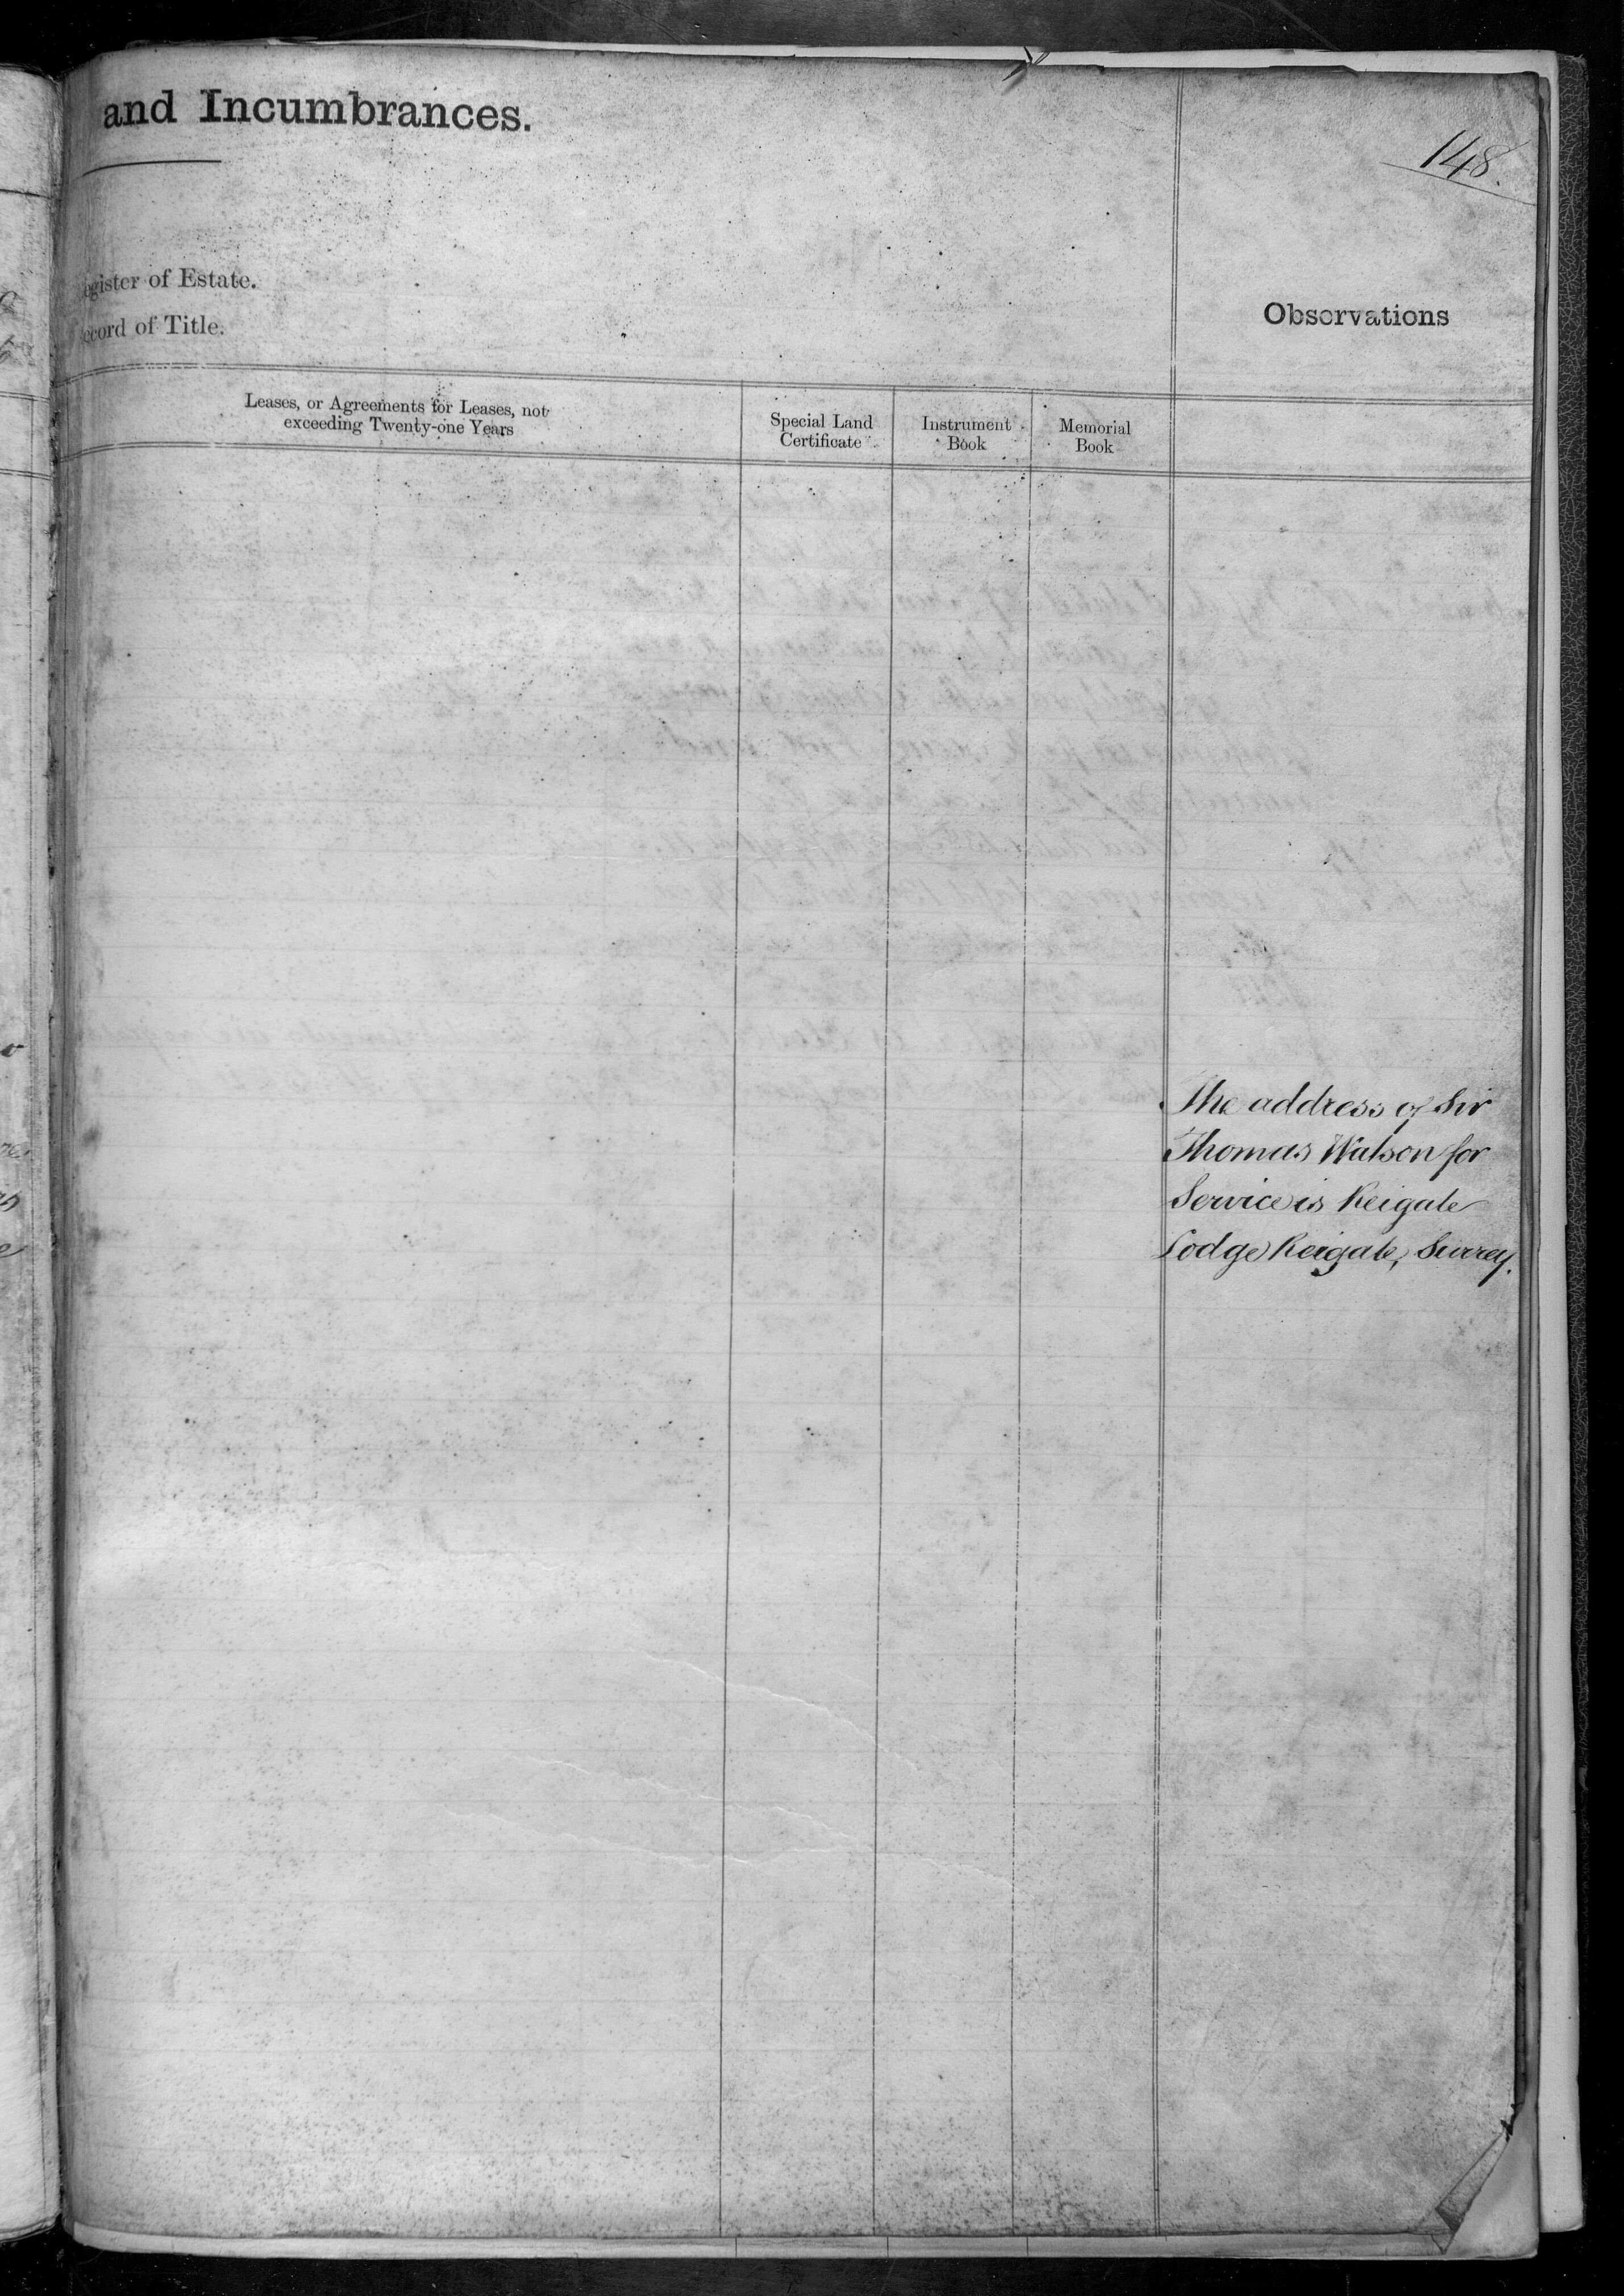 and Incumbrances.
148.
egister of Estate.
ecord of Title.
Observations
Leases, or Agreements for Leases, not
exceeding Twenty-one Years
Special Land
Certificate
Instrument
Book
Memorial
Book
The address of Sir
Thomas Watson for
Service is Reigate
Lodge Reigate, Surrey.